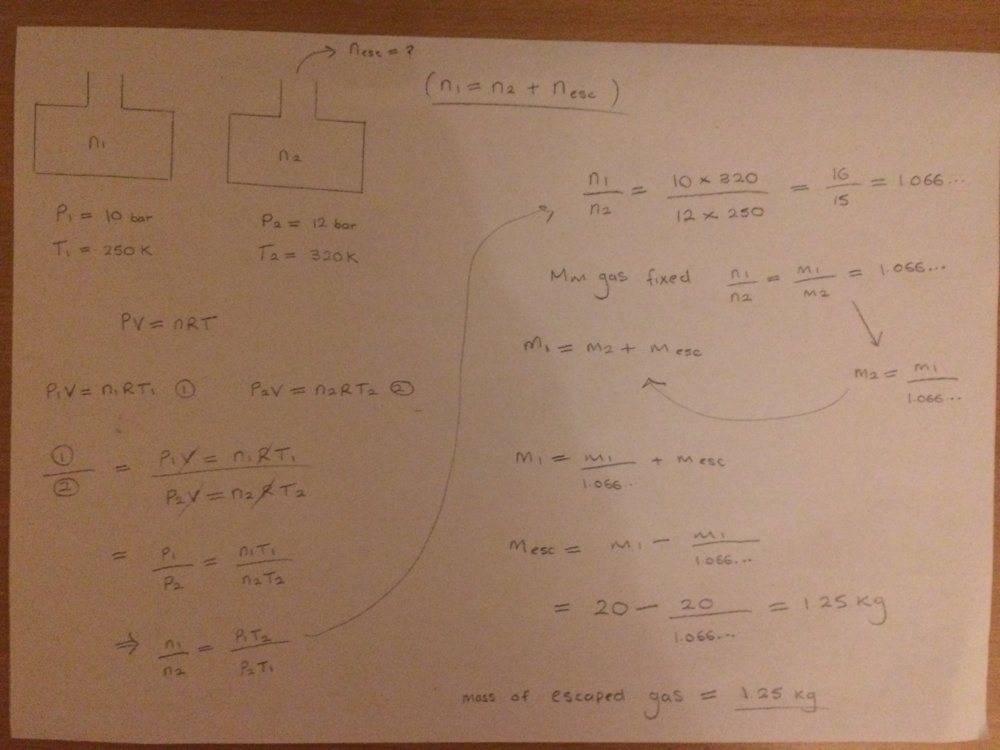 nesc = ?
(n1 = n2 + nesc)
n1
n2
P1 = 10 bar
T1 = 250K
P2 = 12 bar
T2 = 320K
PV = nRT
P1V = n1RT1 ① P2V = n2RT2 ②
①/② = P1V = n1RT1 / P2V = n2RT2
= P1/P2 = n1T1/n2T2
⇒ n1/n2 = P1T2/P2T1
n1/n2 = 10 × 320 / 12 × 250 = 16/15 = 1.066...
Mm gas fixed n1/n2 = m1/m2 = 1.066...
m1 = m2 + mesc
m2 = m1/1.066...
m1 = m1/1.066.. + mesc
mesc = m1 - m1/1.066...
= 20 - 20/1.066... = 1.25 kg
mass of escaped gas = 1.25 kg